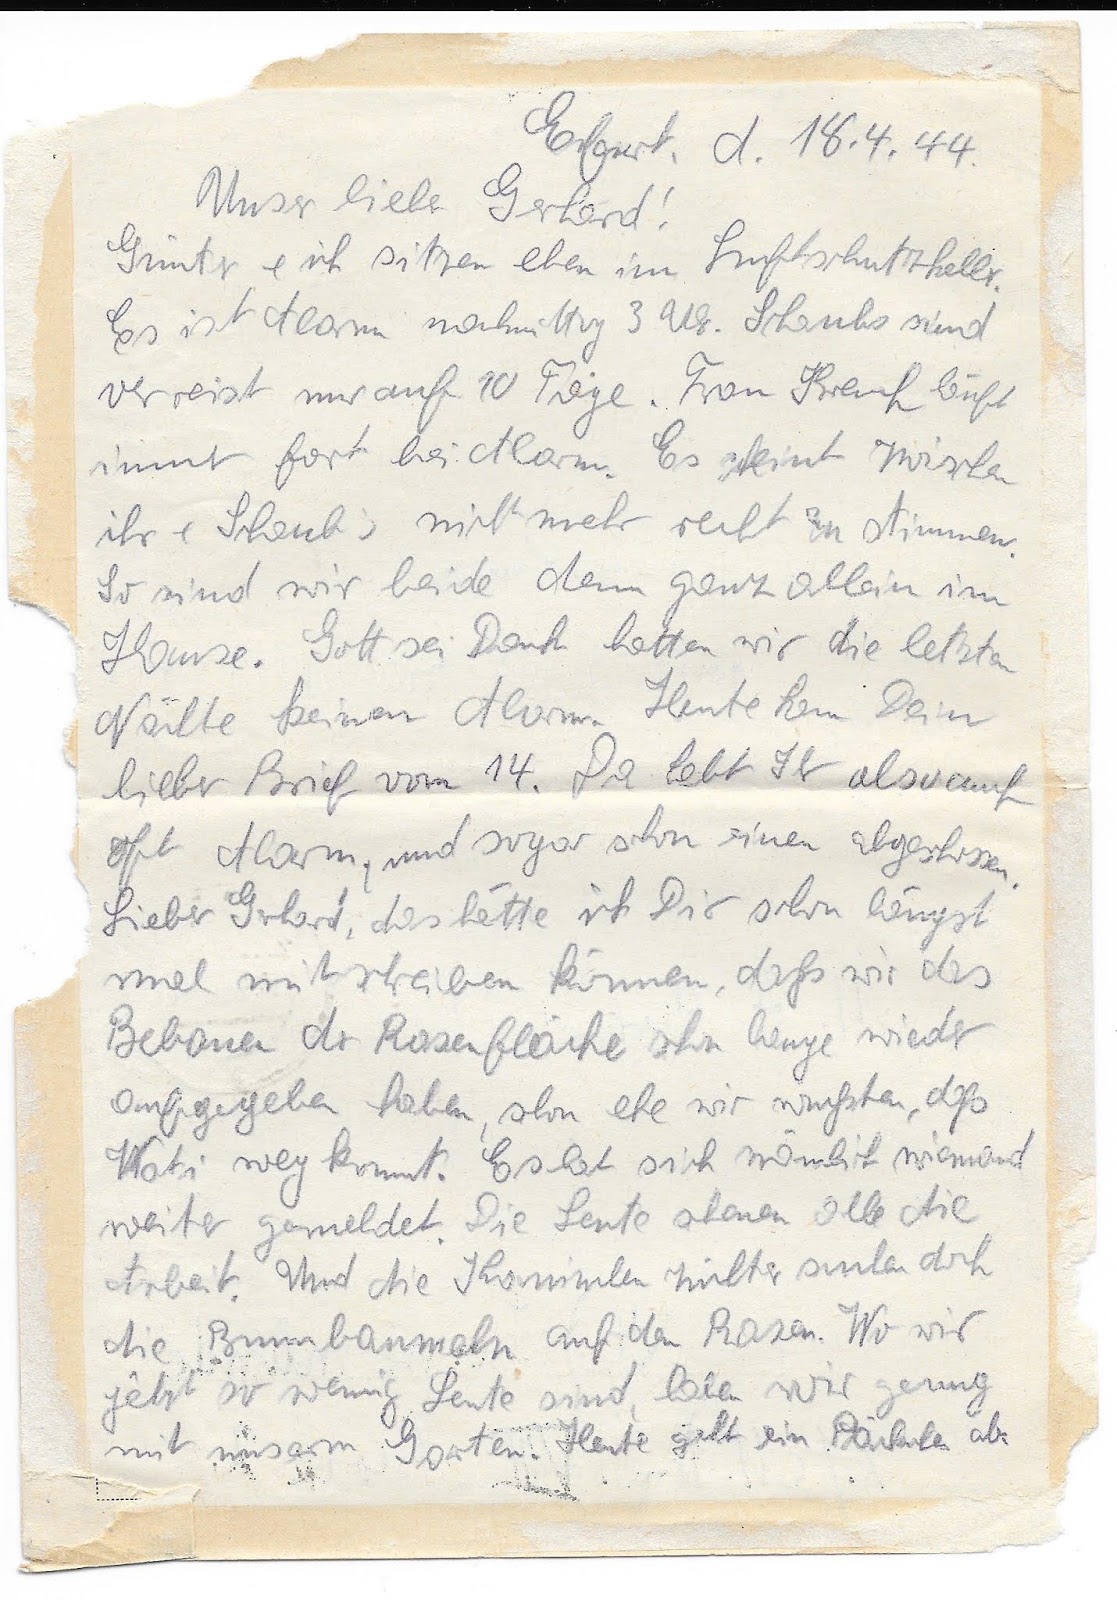 Erfurt. d. 18.4.44.
Unser lieber Gerhard!
Günter & ich sitzen eben im Luftschutzkeller.
Es ist Alarm nachmittag 3 Uhr. Schaubs sind
verreist nur auf 10 Tage. Frau läuft
immer fort bei Alarm. Es scheint zwischen
ihr & Schaub's nicht mehr recht zu stimmen.
So sind wir beide dann ganz allein im
Hause. Gott sei Dank hatten wir die letzten
Nächte keinen Alarm. Heute kam Dein
lieber Brief vom 14. Da habt Ihr also auch
oft Alarm, und sogar schon einen abgeschossen.
Lieber Gerhard, das hätte ich Dir schon längst
mal mitschreiben können, daß wir das
Bebauen der Rasenfläche schon lange wieder
aufgegeben haben, schon ehe wir wußten, daß
Vati weg kommt. Es hat sich nämlich niemand
weiter gemeldet. Die Leute scheuen alle die
Arbeit. Und die doch
die auf den Rasen. Wo wir
jetzt so wenig Leute sind, haben wir genug
mit unserm Garten. Heute geht ein Päckchen ab.